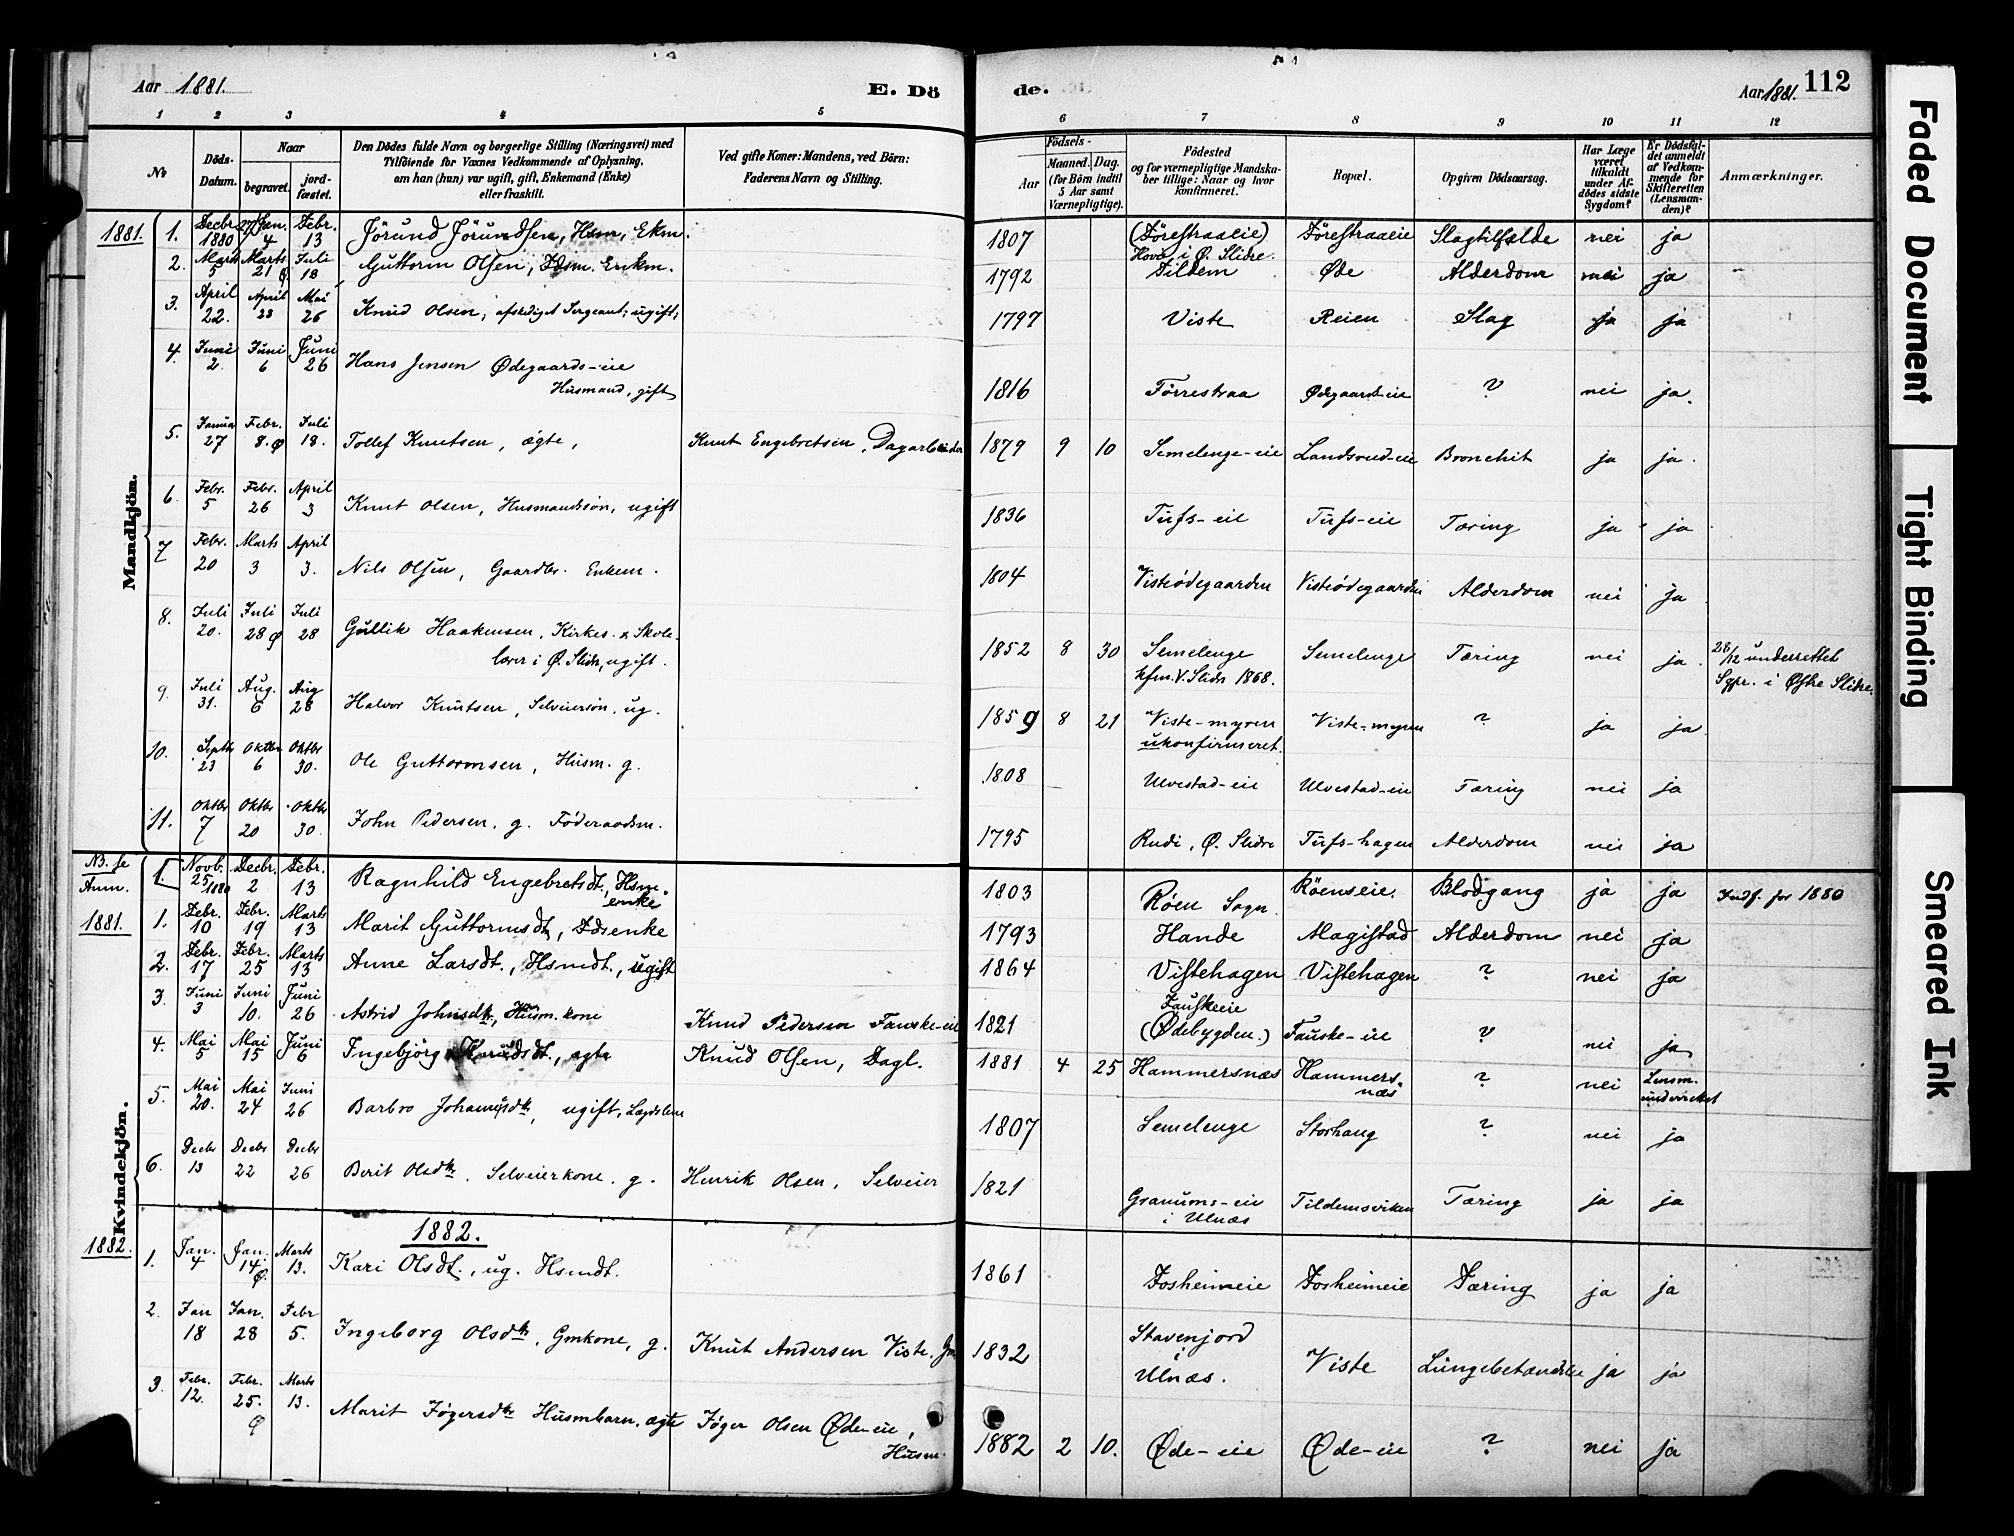 Aar 1881. E. Dö de. Aar 1881. 112
1 2 3 4 5 6 7 8 9 10 11 12
No
Döds-Datum.
Naar
begravet.
jord-fæstet.
Den Dödes fulde Navn og borgerlige Stilling (Næringsvei) med
Tilföiende for Voxnes Vedkommende af Oplysning,
om han (hun) var ugift, gift, Enkemand (Enke)
eller fraskilt.
Ved gifte Koner: Mandens, ved Börn:
Faderens Navn og Stilling.
Födsels-
Aar
Maaned. Dag.
(for Börn indtil
5 Aar samt
Værnepligtige).
Födested
og for værnepligtige Mandska-
ber tillige: Naar og hvor
konfirmeret.
Bopæl.
Opgiven Dödsaarsag.
Har Læge
været
tilkaldt
under Af-
dödes sidste
Sygdom?
Er Dödsfal-
det anmeldt
af Vedkom-
mende for
Skifteretten
(Lensman-
den)?
Anmærkninger.
Mandkjön.
1881. 1. Decbr. 27 1880 Jan. 4 Febr. 13 Jörund Jörundsen, Hsm, Ekm. 1807 (Förestraaeie) Hove, i Ø. Slidre. Förestraaeie Slagtilfælde nei ja
2. Marts 5 Marts 21 Ø Juli 18 Guttorm Olsen, Fdsm. Enkm. 1792 Tildem Øde Alderdom nei ja
3. April 22. April 28 Mai 26 Knud Olsen, afskediget Sergeant; ugift; 1797 Viste Reien Slag ja ja
4. Juni 2. Juni 6 Juni 26 Hans Jensen Ødegaards-eie
Husmand, gift 1816 Förrestraa Ødegaards-eie ? nei ja.
5. Januar 27 Febr. 8. Ø Juli 18. Tollef Knutsen, ægte, Knut Engebretsen, Dagarbeider 1879 9 10 Semelenge-eie Landsrud-eie Bronchit ja ja.
6. Febr. 5 Febr. 26 April 3 Knut Olsen, Husmandssön, ugift 1836 Tufs-eie Tufs-eie Tæring ja ja
7 Febr. 20 Marts 3 April 3. Nils Olsen, Gaardbr. Enkem. 1804 Visteödegaarden Visteödegaarden Alderdom nei ja
8. Juli 20. Juli 28 Ø Juli 28 Gullik Haakensen, Kirkes. & Skole-
lærer i Ø. Slidre, ugift. 1852 8 30 Semelenge
kfm. V. Slidr 1868. Semelenge Tæring nei ja. 28/12 underrettet
Sgpr. i Østre Slidre.
9. Juli 31. Aug. 6 Aug 28 Halvor Knutsen, Selveiersön, ug. 1859 8 21 Viste-myren
ukonfirmeret. Viste-myren ? ja ja.
10. Septbr 23 Oktbr 6 Oktbr 30. Ole Guttormsen, Husm. g. 1808 Ulvestad-eie Ulvestad-eie Tæring nei ja
11. Oktbr 7 Oktbr 20 Oktbr 30. John Pedersen, g. Föderaadsm. 1795 Rudi, Ø. Slidre Tufs-hagen Alderdom nei ja
Kvindekjön.
NB. se
Anm. 1. Novb. 25 1880 Decbr. 2 Febr. 13 Ragnhild Engebretsdt., Hsm.
enke 1803 Röen Sogn Röenseie. Blodgang ja ja Indf. for 1880
1881. 1. Febr. 10 Febr. 19 Marts 13 Marit Guttormsdt, Fdsenke 1793 Hande Magistad Alderdom nei ja
2. Febr. 17 Febr. 25 Marts 13 Anne Larsdt., Hsmdt., ugift 1864 Vistehagen Vistehagen ? nei ja
3. Juni 3 Juni 10. Juni 26 Astrid Johnsdtr, Husm. kone Knud Pedersen Fauske-eie 1821 Fauskeie
(Ødebygden.) Fauske-eie ? nei ja
4. Mai 5 Mai 15 Juni 6 Ingebjörg Knudsdt., ægte Knud Olsen, Dagl. 1881 4 25 Hammersnæs Hammers-
næs ? nei Lensm.
underrettet
5. Mai 20. Mai 24 Juni 26 Barbro Johannesdtr, ugift, Lægdslem 1807 Semelenge Storhaug ? nei ja
6. Decbr 13 Decbr 22 Decbr 26 Berit Olsdtr. Selveierkone. g. Henrik Olsen, Selveier 1821 Granums-eie
i Ulnæs Tildemsviken Tæring ja ja
1882.
1882. 1. Jan. 4 Jan. 14 Ø Marts 13. Kari Olsdt., ug. Hsmdt. 1861 Fosheimeie Fosheimeie Tæring ja ja
2. Jan 18 Jan. 28 Febr 5. Ingeborg Olsdtr, Gmkone, g. Knut Andersen Viste. Gm 1832 Stavenjord
i
Ulnæs. Viste Lungebetændelse ja ja
3. Febr. 12. Febr. 25. Ø Marts 13. Marit Jögersdtr Husmbarn. ægte Jöger Olsen Øde-eie,
Husm. 1882 2 10. Øde-eie Øde-eie ? nei ja
Faded Document
Tight Binding
Smeared Ink